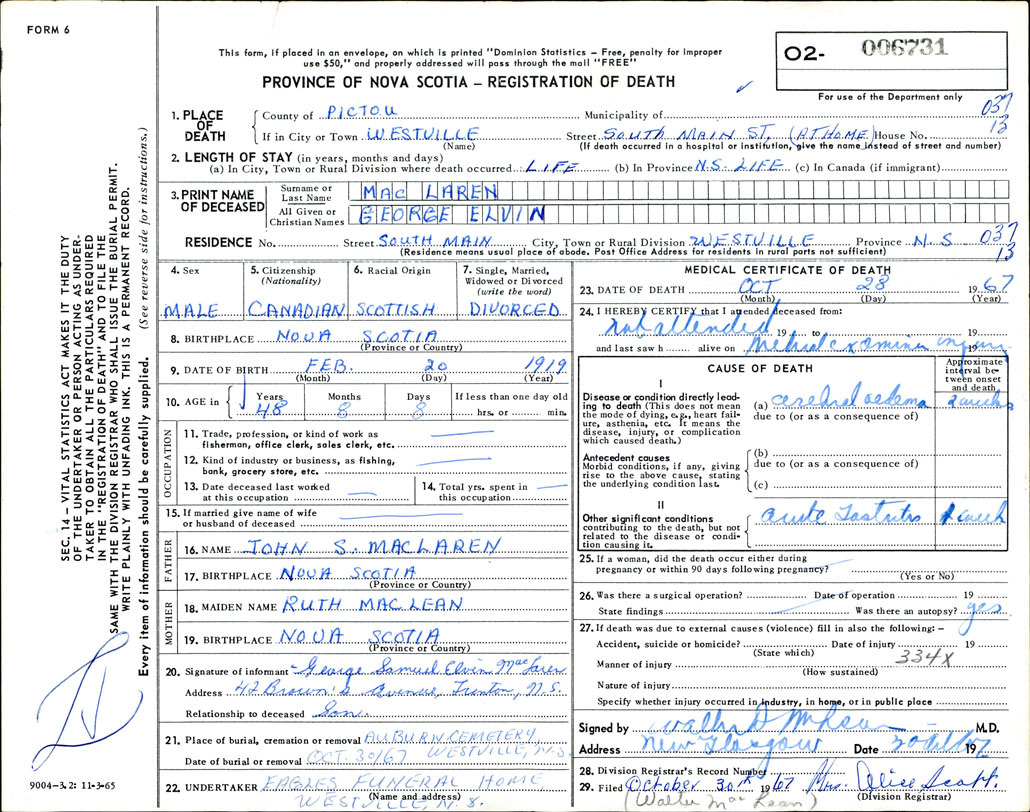 FORM 6
This form, if placed in an envelope, on which is printed "Dominion Statistics – Free, penalty for improper
use $50," and properly addressed will pass through the mail "FREE"
PROVINCE OF NOVA SCOTIA – REGISTRATION OF DEATH
O2- 006731
For use of the Department only
037
13
1. PLACE OF DEATH
County of PICTOU Municipality of
If in City or Town WESTVILLE Street SOUTH MAIN ST. (AT HOME) House No.
(Name) (If death occurred in a hospital or institution, give the name instead of street and number)
2. LENGTH OF STAY (in years, months and days)
(a) In City, Town or Rural Division where death occurred LIFE (b) In Province N.S. LIFE (c) In Canada (if immigrant)
3. PRINT NAME OF DECEASED
Surname or Last Name MAC LAREN
All Given or Christian Names GEORGE ELVIN
RESIDENCE No. Street SOUTH MAIN City, Town or Rural Division WESTVILLE Province N.S 037
13
(Residence means usual place of abode. Post Office Address for residents in rural parts not sufficient)
SEC. 14 – VITAL STATISTICS ACT MAKES IT THE DUTY
OF THE UNDERTAKER OR PERSON ACTING AS UNDER-
TAKER TO OBTAIN ALL THE PARTICULARS REQUIRED
IN THE "REGISTRATION OF DEATH" AND TO FILE THE
SAME WITH THE DIVISION REGISTRAR WHO SHALL ISSUE THE BURIAL PERMIT.
WRITE PLAINLY WITH UNFADING INK. THIS IS A PERMANENT RECORD.
Every item of information should be carefully supplied. (See reverse side for instructions.)
4. Sex
MALE
5. Citizenship
(Nationality)
CANADIAN
6. Racial Origin
SCOTTISH
7. Single, Married,
Widowed or Divorced
(write the word)
DIVORCED
8. BIRTHPLACE NOVA SCOTIA
(Province or Country)
9. DATE OF BIRTH FEB. 20 1919
(Month) (Day) (Year)
10. AGE in
Years Months Days If less than one day old
48 8 8 hrs. or min.
OCCUPATION
11. Trade, profession, or kind of work as
fisherman, office clerk, sales clerk, etc.
12. Kind of industry or business, as fishing,
bank, grocery store, etc.
13. Date deceased last worked
at this occupation
14. Total yrs. spent in
this occupation
15. If married give name of wife
or husband of deceased
FATHER
16. NAME JOHN S. MACLAREN
17. BIRTHPLACE NOVA SCOTIA
(Province or Country)
MOTHER
18. MAIDEN NAME RUTH MACLEAN
19. BIRTHPLACE NOVA SCOTIA
(Province or Country)
20. Signature of informant George Samuel Elvin MacLaren
Address 42 Brown's Avenue, Trenton, N.S.
Relationship to deceased Son.
21. Place of burial, cremation or removal AUBURN CEMETERY
WESTVILLE, N.S.
Date of burial or removal OCT. 30/67
22. UNDERTAKER EAGLES FUNERAL HOME
(Name and address)
WESTVILLE N.S.
9004–3.2: 11-3-65
MEDICAL CERTIFICATE OF DEATH
23. DATE OF DEATH OCT 28 1967
(Month) (Day) (Year)
24. I HEREBY CERTIFY that I attended deceased from:
not attended 19 to 19
and last saw h alive on Medical examiner inquiry 19
CAUSE OF DEATH
Approximate
interval be-
tween onset
and death
I
Disease or condition directly lead-
ing to death (This does not mean
the mode of dying, e.g., heart fail-
ure, asthenia, etc. It means the
disease, injury, or complication
which caused death.)
(a) cerebral oedema
due to (or as a consequence of)
Antecedent causes
Morbid conditions, if any, giving
rise to the above cause, stating
the underlying condition last.
(b)
due to (or as a consequence of)
(c)
II
Other significant conditions
contributing to the death, but not
related to the disease or condi-
tion causing it.
acute Gastritis
25. If a woman, did the death occur either during
pregnancy or within 90 days following pregnancy?
(Yes or No)
26. Was there a surgical operation? Date of operation 19
State findings Was there an autopsy? yes
27. If death was due to external causes (violence) fill in also the following: –
Accident, suicide or homicide? Date of injury 19
(State which) 334X
Manner of injury
(How sustained)
Nature of injury
Specify whether injury occurred in industry, in home, or in public place
Signed by M.D.
Address New Glasgow Date 19
28. Division Registrar's Record Number
29. Filed October 30th 1967 Mrs. Alice Scott
(Walter MacLean) (Division Registrar)